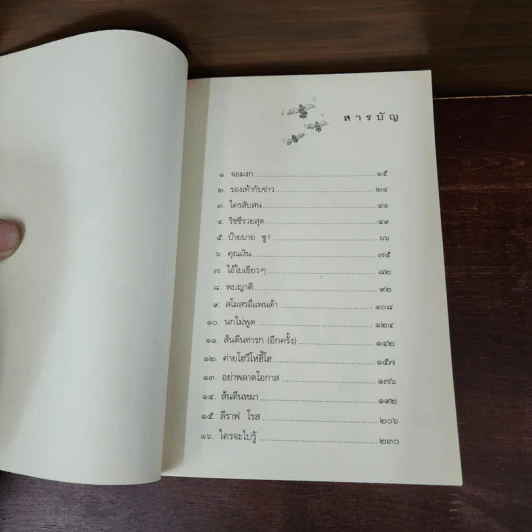 สารบัญ
๑. จอมงก ๑๕
๒. รองเท้ากับข่าว ๒๔
๓. ใครสับสน ๔๑
๔. ริชชี่รวยสุด ๔๙
๕. บ๊ายบาย ซู! ๖๖
๖. คุณเงิน ๗๕
๗. ไอ้ใบเขียวๆ ๘๒
๘. พบญาติ ๙๒
๙. สโมสรอีแพนด้า ๑๐๘
๑๐. นกไม่พูด ๑๒๔
๑๑. ส้นตีนทารก (อีกครั้ง) ๑๔๒
๑๒. ค่ายโฮวีโห่ฮี้โฮ ๑๕๗
๑๓. อย่าพลาดโอกาส ๑๗๖
๑๔. ส้นตีนหมา ๑๙๒
๑๕. ลีราฟ โรส ๒๐๖
๑๖. ใครจะไปรู้ ๒๓๐